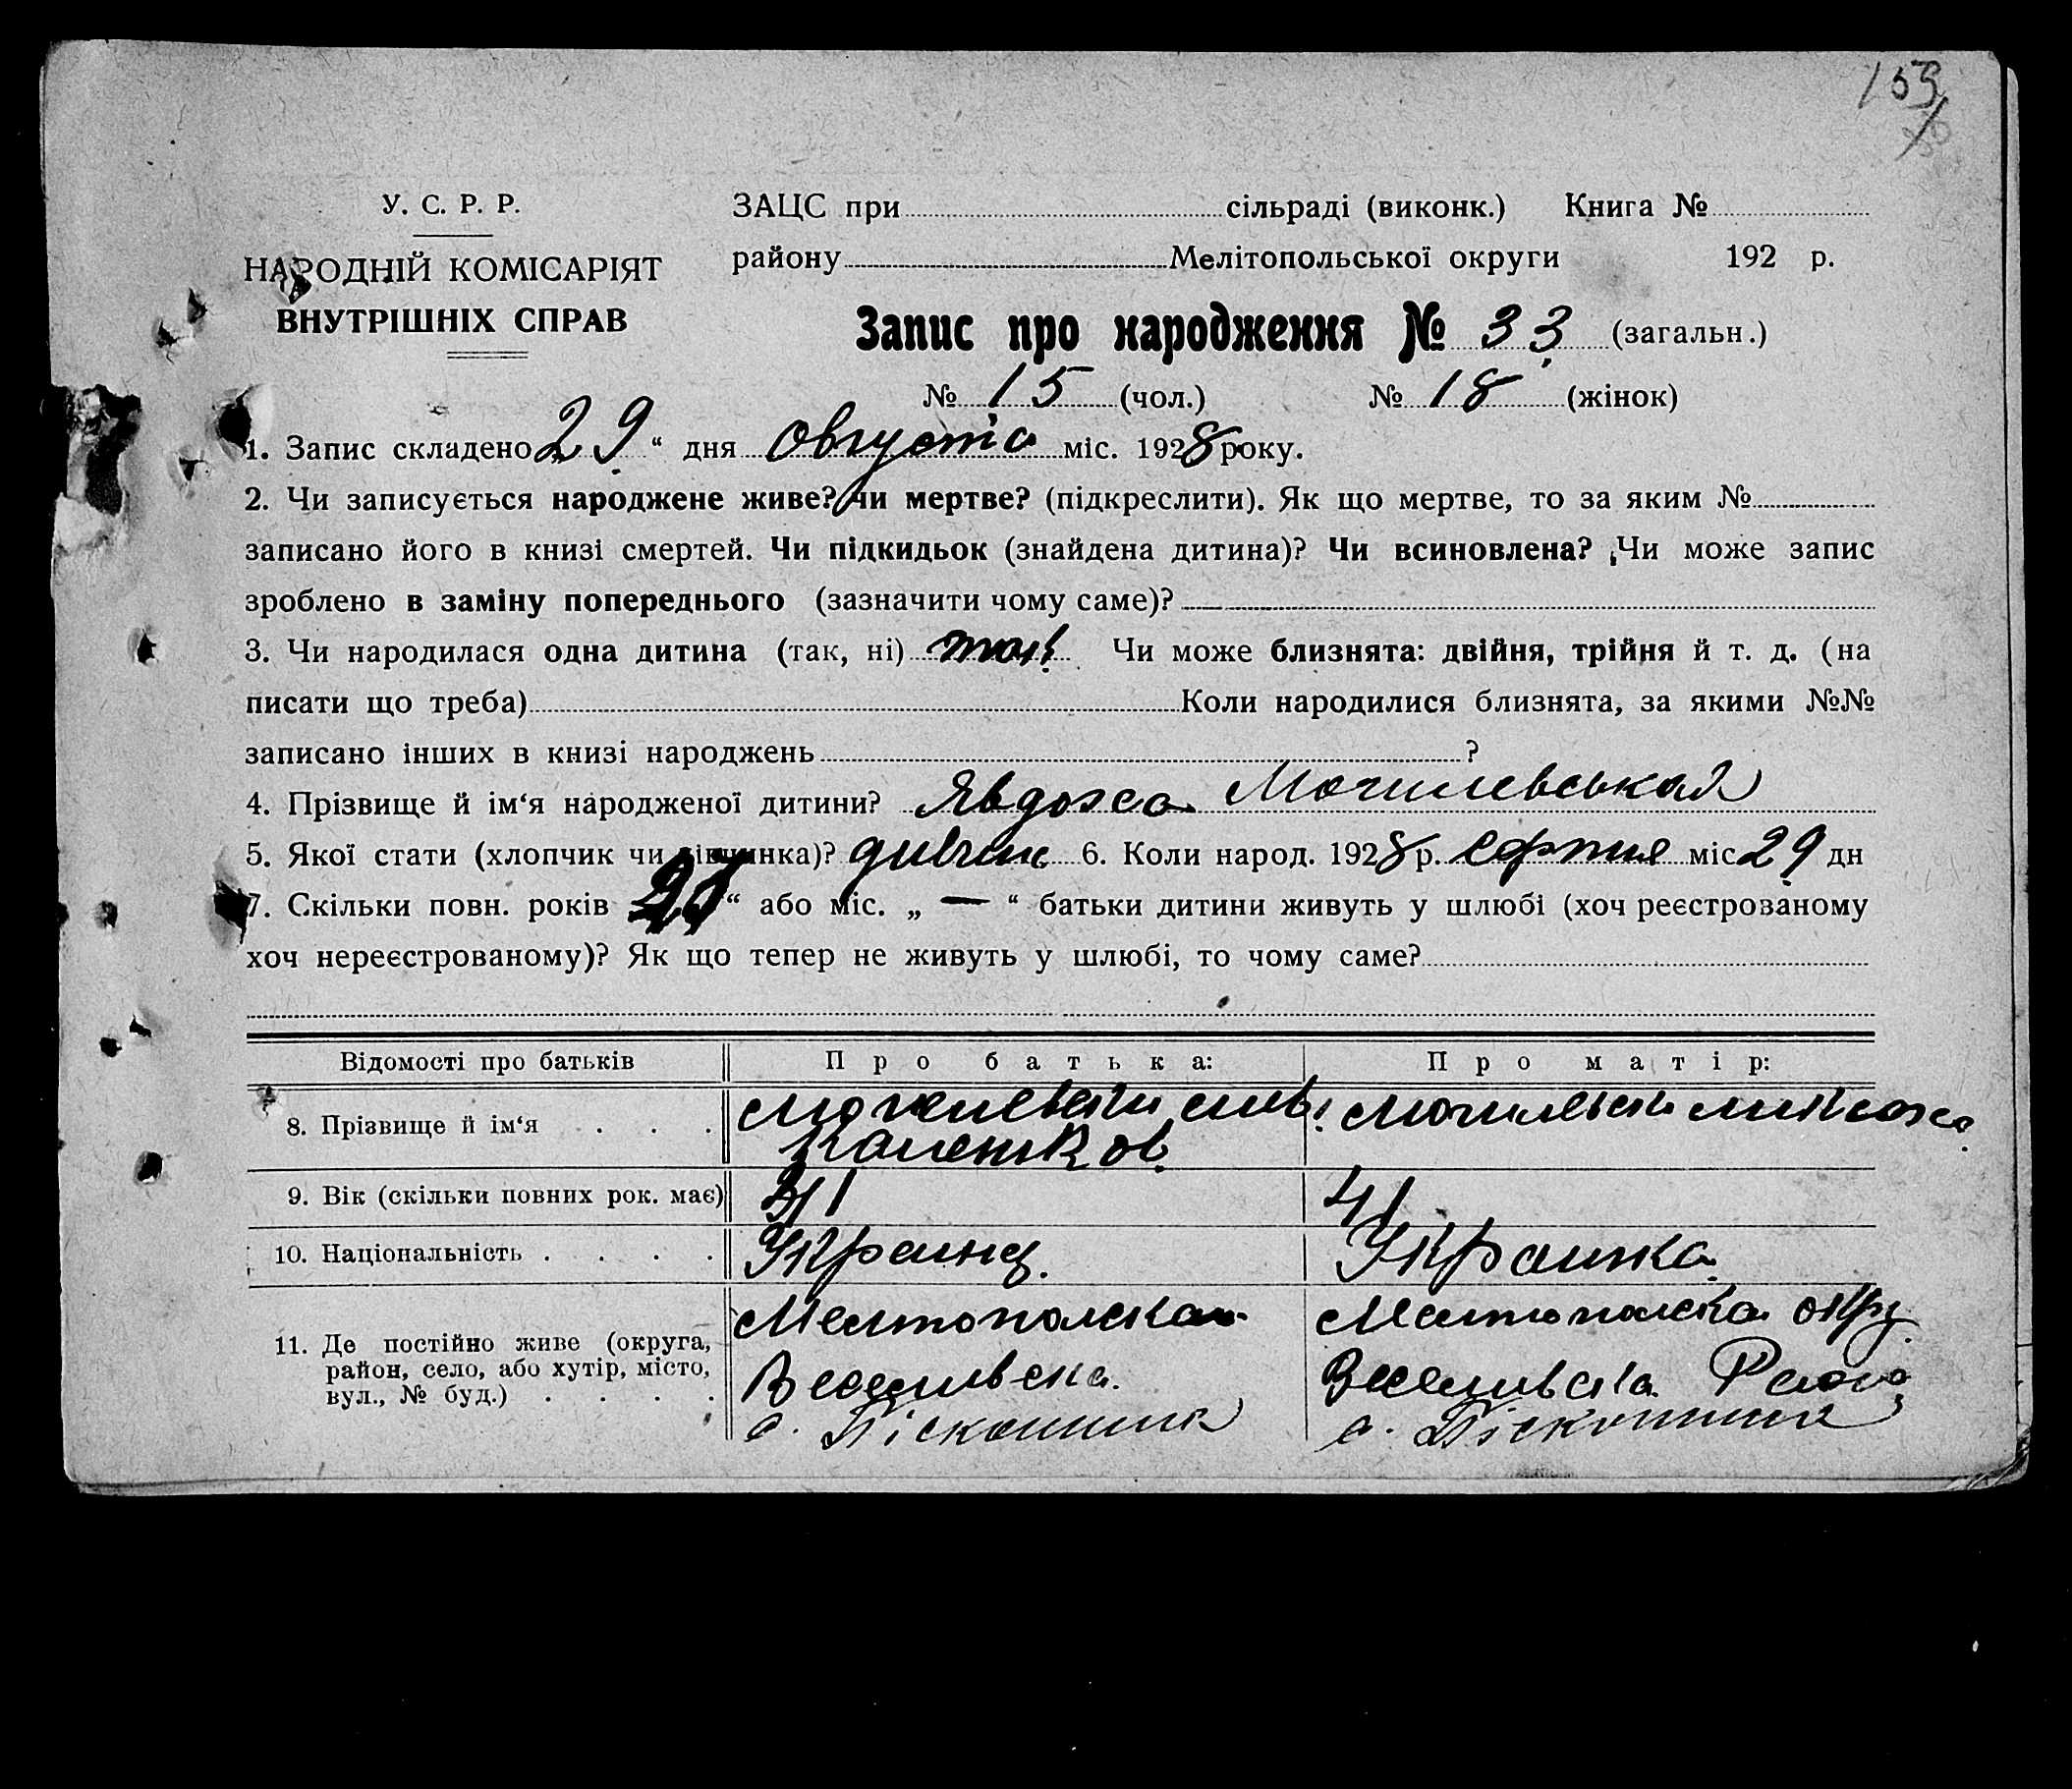 153
У. С. Р. Р.
НАРОДНІЙ КОМІСАРІЯТ
ВНУТРІШНІХ СПРАВ
ЗАЦС при сільраді (виконк.) Книга №
району Мелітопольської округи 192 р.
Запис про народження № 33 (загальн.)
№ 15 (чол.) № 18 (жінок)
1. Запис складено 29 “ дня Овгуста міс. 1928 року.
2. Чи записується народжене живе? чи мертве? (підкреслити). Як що мертве, то за яким №
записано його в книзі смертей. Чи підкидьок (знайдена дитина)? Чи всиновлена? Чи може запис
зроблено в заміну попереднього (зазначити чому саме)? —
3. Чи народилася одна дитина (так, ні) Чи може близнята: двійня, трійня й т. д. (на
писати що треба) Коли народилися близнята, за якими №№
записано інших в книзі народжень ?
4. Прізвище й ім‘я народженої дитини? Явдоха Могилевськая
5. Якої стати (хлопчик чи дівчинка)? 6. Коли народ. 1928 р. серпня міс 29 дн
7. Скільки повн. років “ або міс. „ — “ батьки дитини живуть у шлюбі (хоч реєстрованому
хоч нереєстрованому)? Як що тепер не живуть у шлюбі, то чому саме?
Відомості про батьків Про батька: Про матір:
8. Прізвище й ім‘я . . .
9. Вік (скільки повних рок. має) 41 41
10. Національність . . . . Украинц. Украинка
11. Де постійно живе (округа, район, село, або хутір, місто, вул., № буд.) . . . .
Мелитополска Мелитополска окру.
Веселивска. Веселивска Район
с. Піскошине с. Піскошине